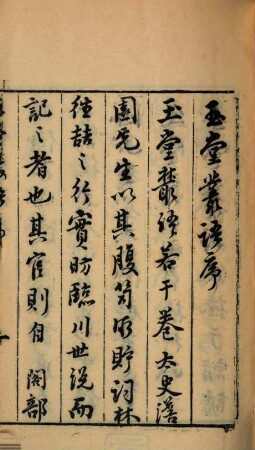 玉堂叢語序
玉堂叢語若干卷太史澹
園先生以其腹笥所貯詞林
徃喆之行實昉臨川世說而
記之者也其官則自閣部